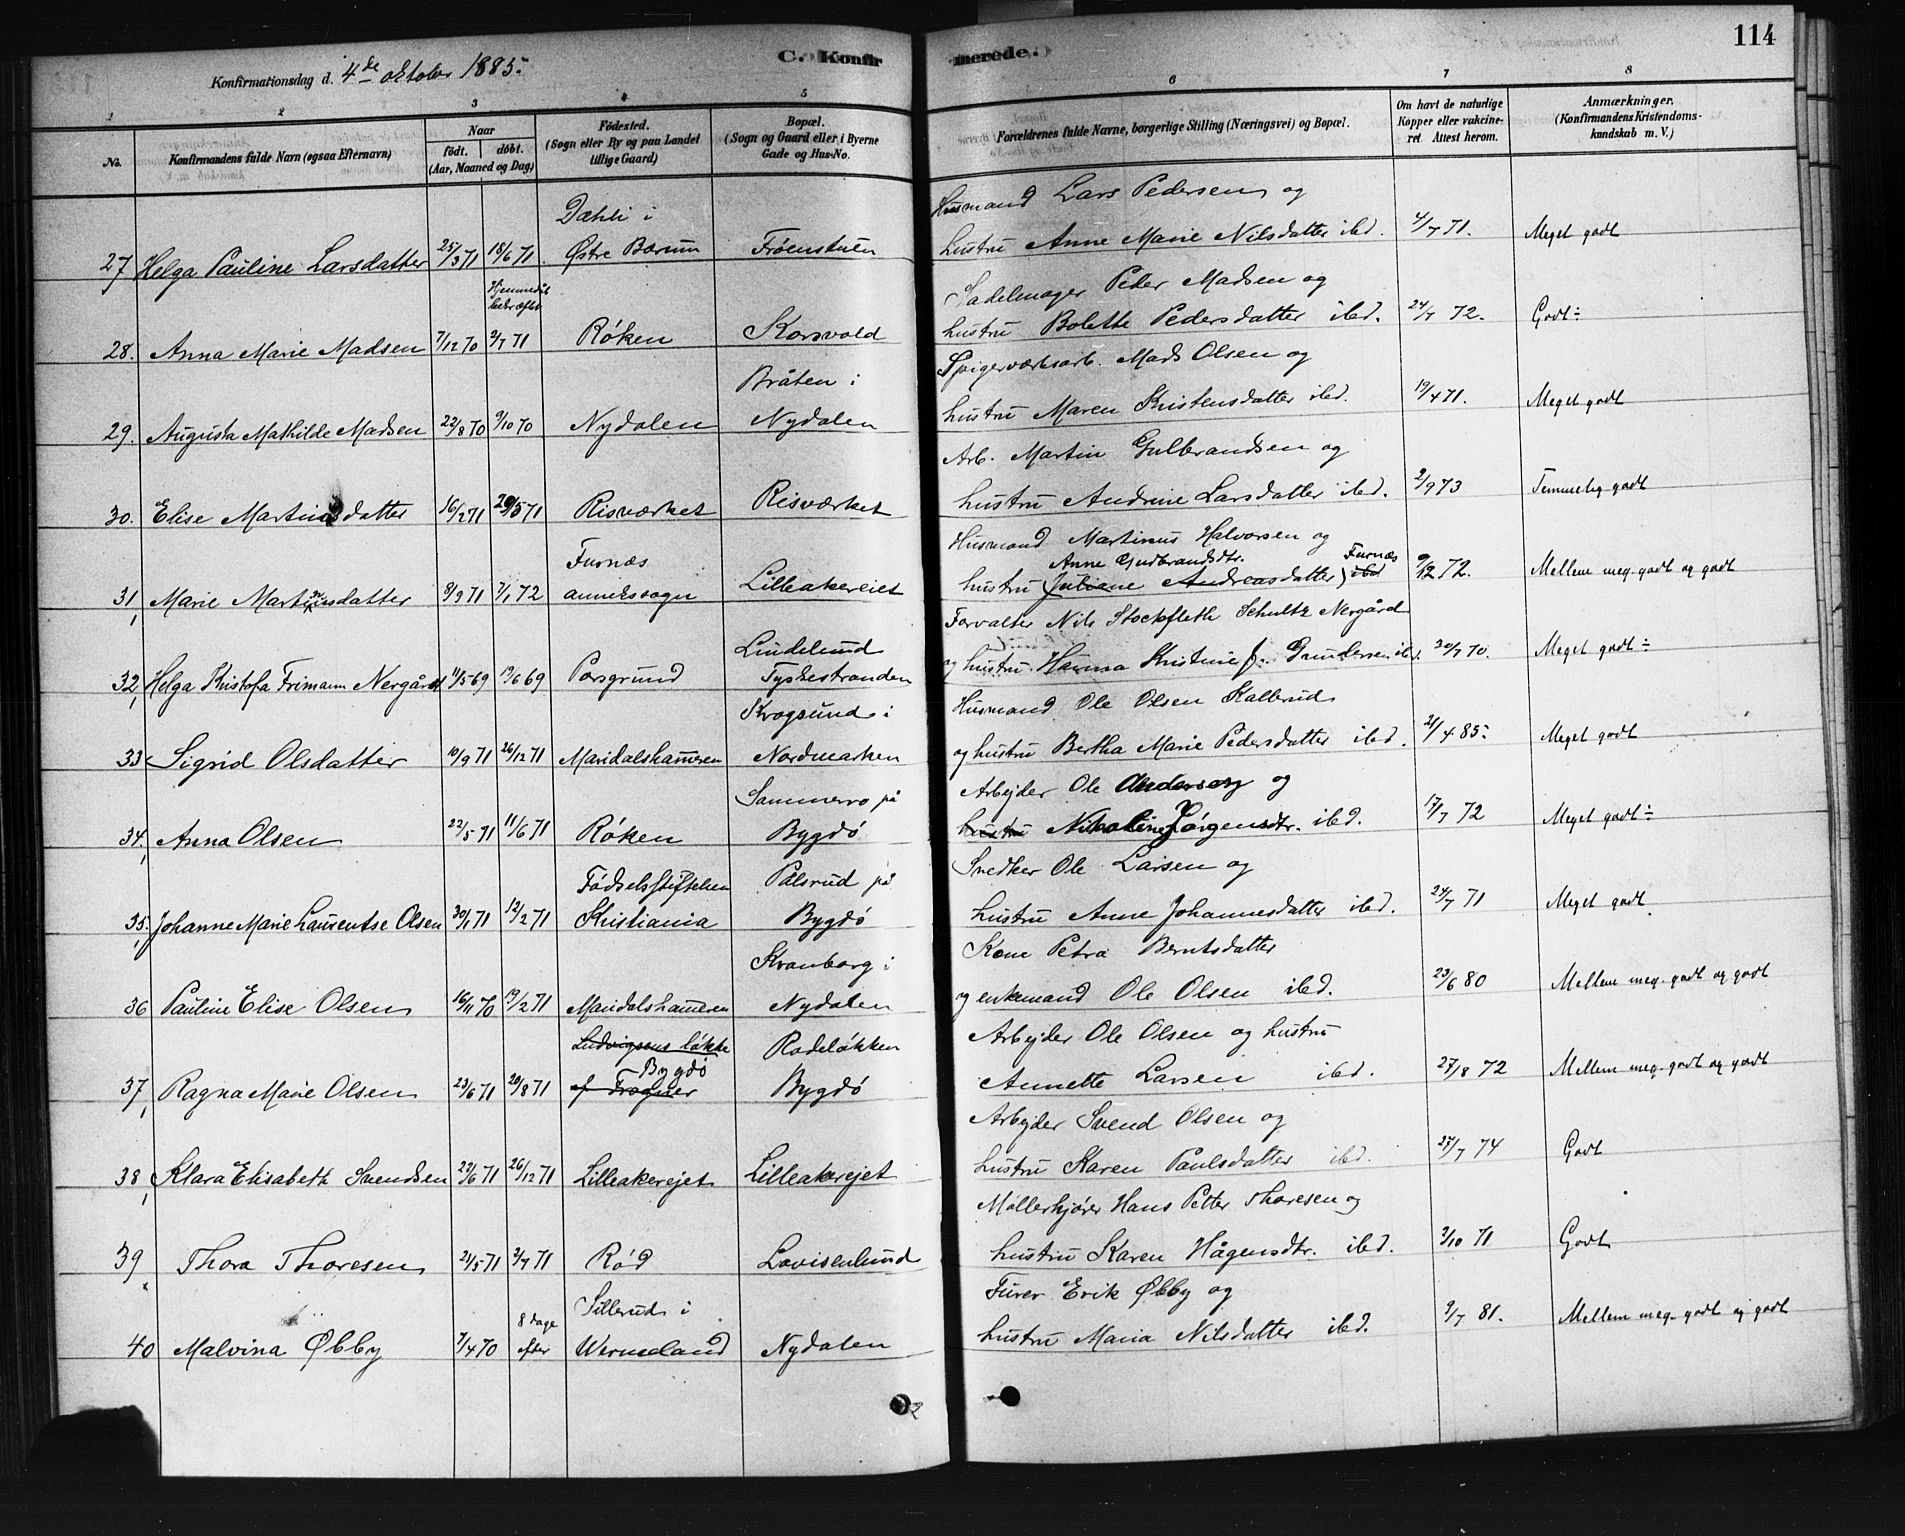 114
C. Konfirmerede.
Konfirmationsdag d. 4de oktober 1885.
1 2 3 4 5 6 7 8
No.
Konfirmandens fulde Navn (ogsaa Efternavn)
Naar
født. døbt.
(Aar, Maaned og Dag)
Fødested.
(Sogn eller By og paa Landet
tillige Gaard)
Bopæl.
(Sogn og Gaard eller i Byerne
Gade og Hus-No.
Forældrenes fulde Navne, borgerlige Stilling (Næringsvei) og Bopæl.
Om havt de naturlige
Kopper eller vakcine-
ret Attest herom.
Anmærkninger.
(Konfirmandens Kristendoms-
kundskab m. V.)
Dæhli i Husmand Lars Pedersen og
27 Helga Pauline Larsdatter 25/3 71 18/6 71. Østre Bærum Frøenstuen hustru Anne Marie Nilsdatter ibd. 4/7 71. Meget godt
Hjemmedåb bekræftet Sadelmager Peder Madsen og
28. Anna Marie Madsen 7/12 70 2/7 71 Røken Korsvold hustru Bolette Pedersdatter ibd. 24/7 72. Godt÷
Bråten i Spigerværksarb. Mads Olsen og
29. Augusta Mathilde Madsen 22/8 70 9/10 70 Nydalen Nydalen hustru Maren Kristensdatter ibd. 19/4 71. Meget godt
Arb. Martin Gulbrandsen og
30. Elise Martinsdatter 16/2 71 29/5 71 Risværket Risværket hustru Andrine Larsdatter ibd. 2/9 73 Temmelig godt
Furnæs Husmand Martinus Halvorsen og
Anne Gudbrandsdtr. Furnæs
31, Marie Martinusdatter 8/9 71 7/1 72 annekssogn Lilleakereiet hustru Juliane Andreasdatter ibd 9/12 72. Mellem meg. godt og godt
Lindelund Forvalter Nils Stockfleth Schultz Nergård
32, Helga Kristofa Frimann Nergård 11/5 69 13/6 69 Porsgrund Tyskestranden og hustru Hanna Kristine f. Gundersen ibd. 30/7 70. Meget godt÷
Krogsund i Husmand Ole Olsen Kallerud
33 Sigrid Olsdatter 10/9 71 26/12 71 Maridalshameren Nordmarken og hustru Bertha Marie Pedersdatter ibd. 21/4 85. Meget godt
Sommerro på Arbejder Ole Andersen og
34. Anna Olsen 22/5 71 11/6 71 Røken Bygdö hustru Nikoline Jörgensdtr. ibd. 17/7 72 Meget godt÷
Fødselsstiftelsen Pålsrud på Snedker Ole Larsen og
35. Johanne Marie Laurentse Olsen 30/1 71 12/2 71 Kristiania Bygdö hustru Anne Johannesdatter ibd. 24/7 71 Meget godt
Kranborg i Kone Petra Berntsdatter
36 Pauline Elise Olsen 16/11 70 19/2 71 Maridalshameren Nydalen og enkemand Ole Olsen ibd. 23/6 80 Mellem meg. godt og godt
Ludvigsens løkke Rodeløkken Arbejder Ole Olsen og hustru
Bygdö
37, Ragna Marie Olsen 23/6 71 20/8 71 af Frogner Bygdö Annette Larsen ibd. 27/8 72 Mellem meg. godt og godt
Arbejder Svend Olsen og
38, Klara Elisabeth Svendsen 22/6 71 26/12 71 Lilleakerejet Lilleakerejet hustru Karen Paulsdatter ibd. 27/7 74 Godt
Møllerkjører Hans Petter Thoresen og
39 Thora Thoresen 21/5 71 2/7 71 Röd Lovisenlund hustru Karen Hågensdtr. ibd. 2/10 71 Godt
8 dage Sillerud i Furer Erik Øbby og
40 Malvina Øbby 7/4 70 efter Wermeland Nydalen hustru Maria Nilsdatter ibd. 9/7 81. Mellem meg. godt og godt